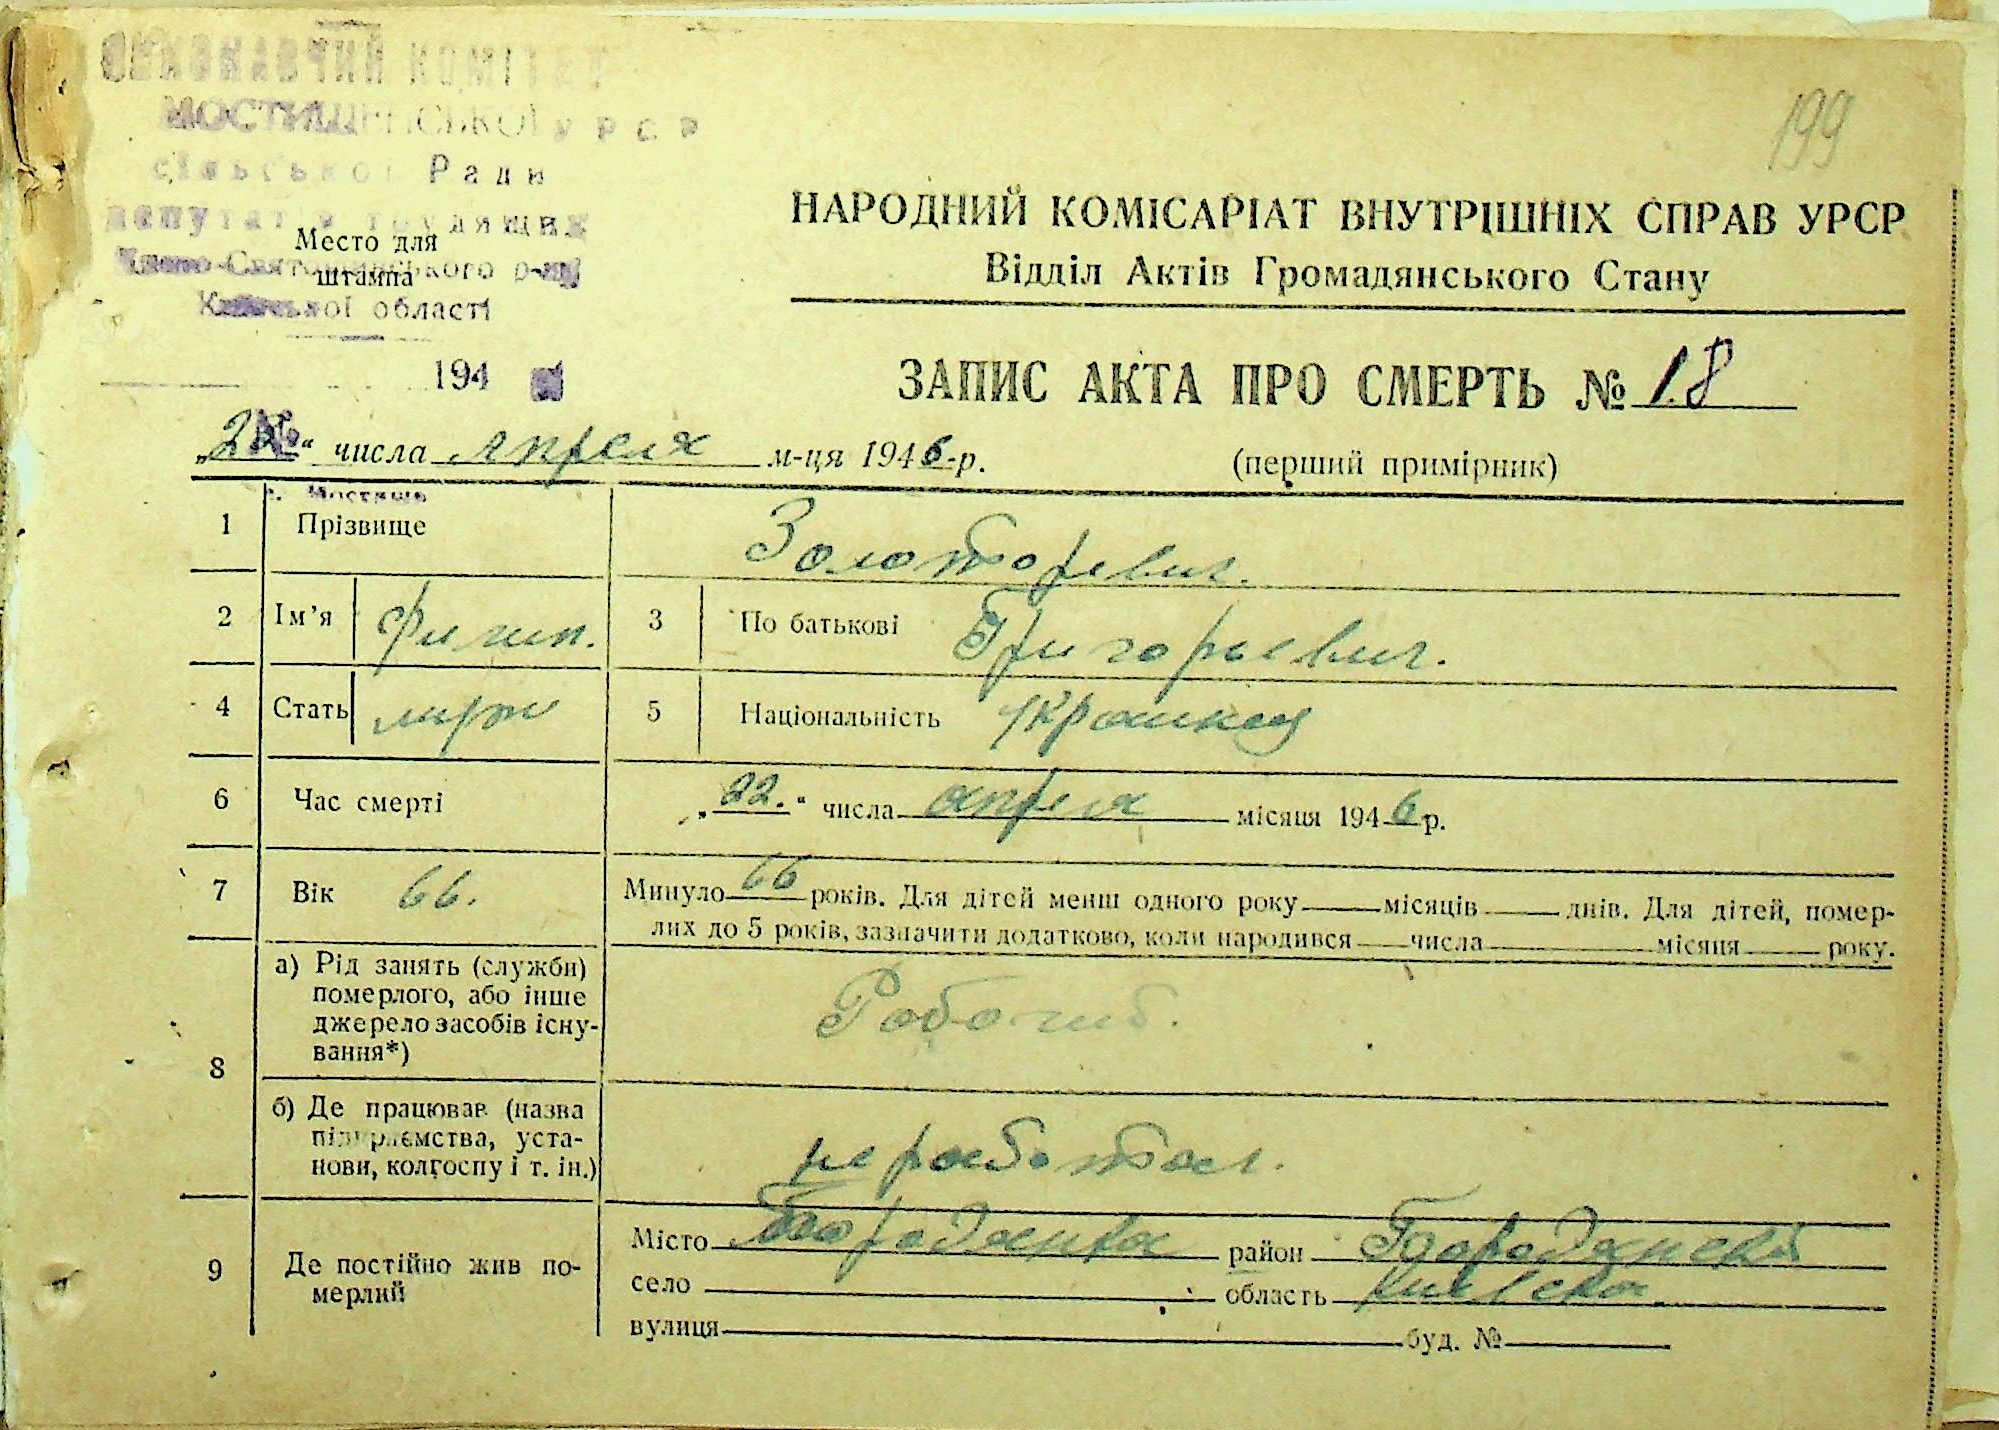 ВИКОНАВЧИЙ КОМІТЕТ
МОСТИЩЕНСЬКОЇ УРСР
сільської Ради
депутатів трудящих
Києво-Святошинського р-ну
Київської області
Место для
штампа
194
№
с. Мостище
199
НАРОДНИЙ КОМІСАРІАТ ВНУТРІШНІХ СПРАВ УРСР
Відділ Актів Громадянського Стану
ЗАПИС АКТА ПРО СМЕРТЬ № 18
„22“ числа апреля м-ця 1946-р.
(перший примірник)
1 Прізвище Золоторевич.
2 Ім’я Филип. 3 По батькові Григорьевич.
4 Стать муж 5 Національність украинец
6 Час смерті „22.“ числа апреля місяця 1946 р.
7 Вік 66. Минуло 66 років. Для дітей менш одного року місяців днів. Для дітей, помер-
лих до 5 років, зазначити додатково, коли народився числа місяця року.
8 а) Рід занять (служби)
померлого, або інше
джерело засобів існу-
вання*)
Рабочий.
б) Де працював (назва
підприємства, уста-
нови, колгоспу і т. ін.)
не работал.
9 Де постійно жив по-
мерлий
Місто Бородянка район Бородянский
село область Киевска
вулиця буд. №